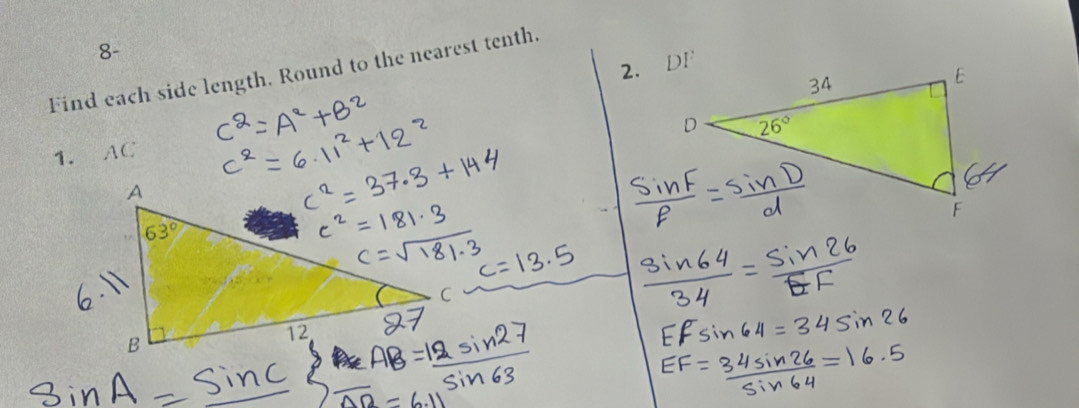 8-
Find each side length. Round to the nearest tenth.
1. AC
c² = A² + B²
c² = 6.11² + 12²
c² = 37.3 + 144
c² = 181.3
c = √181.3
c = 13.5
A
63°
6.11
B
12
27
C
Sin A = Sin C
AB = 12 sin27
sin 63
AB = 6.11
2. DF
34
E
D
26°
64
F
Sin F = Sin D
f d
Sin 64 = Sin 26
34 EF
EF sin 64 = 34 Sin 26
EF = 34 sin 26 = 16.5
sin 64